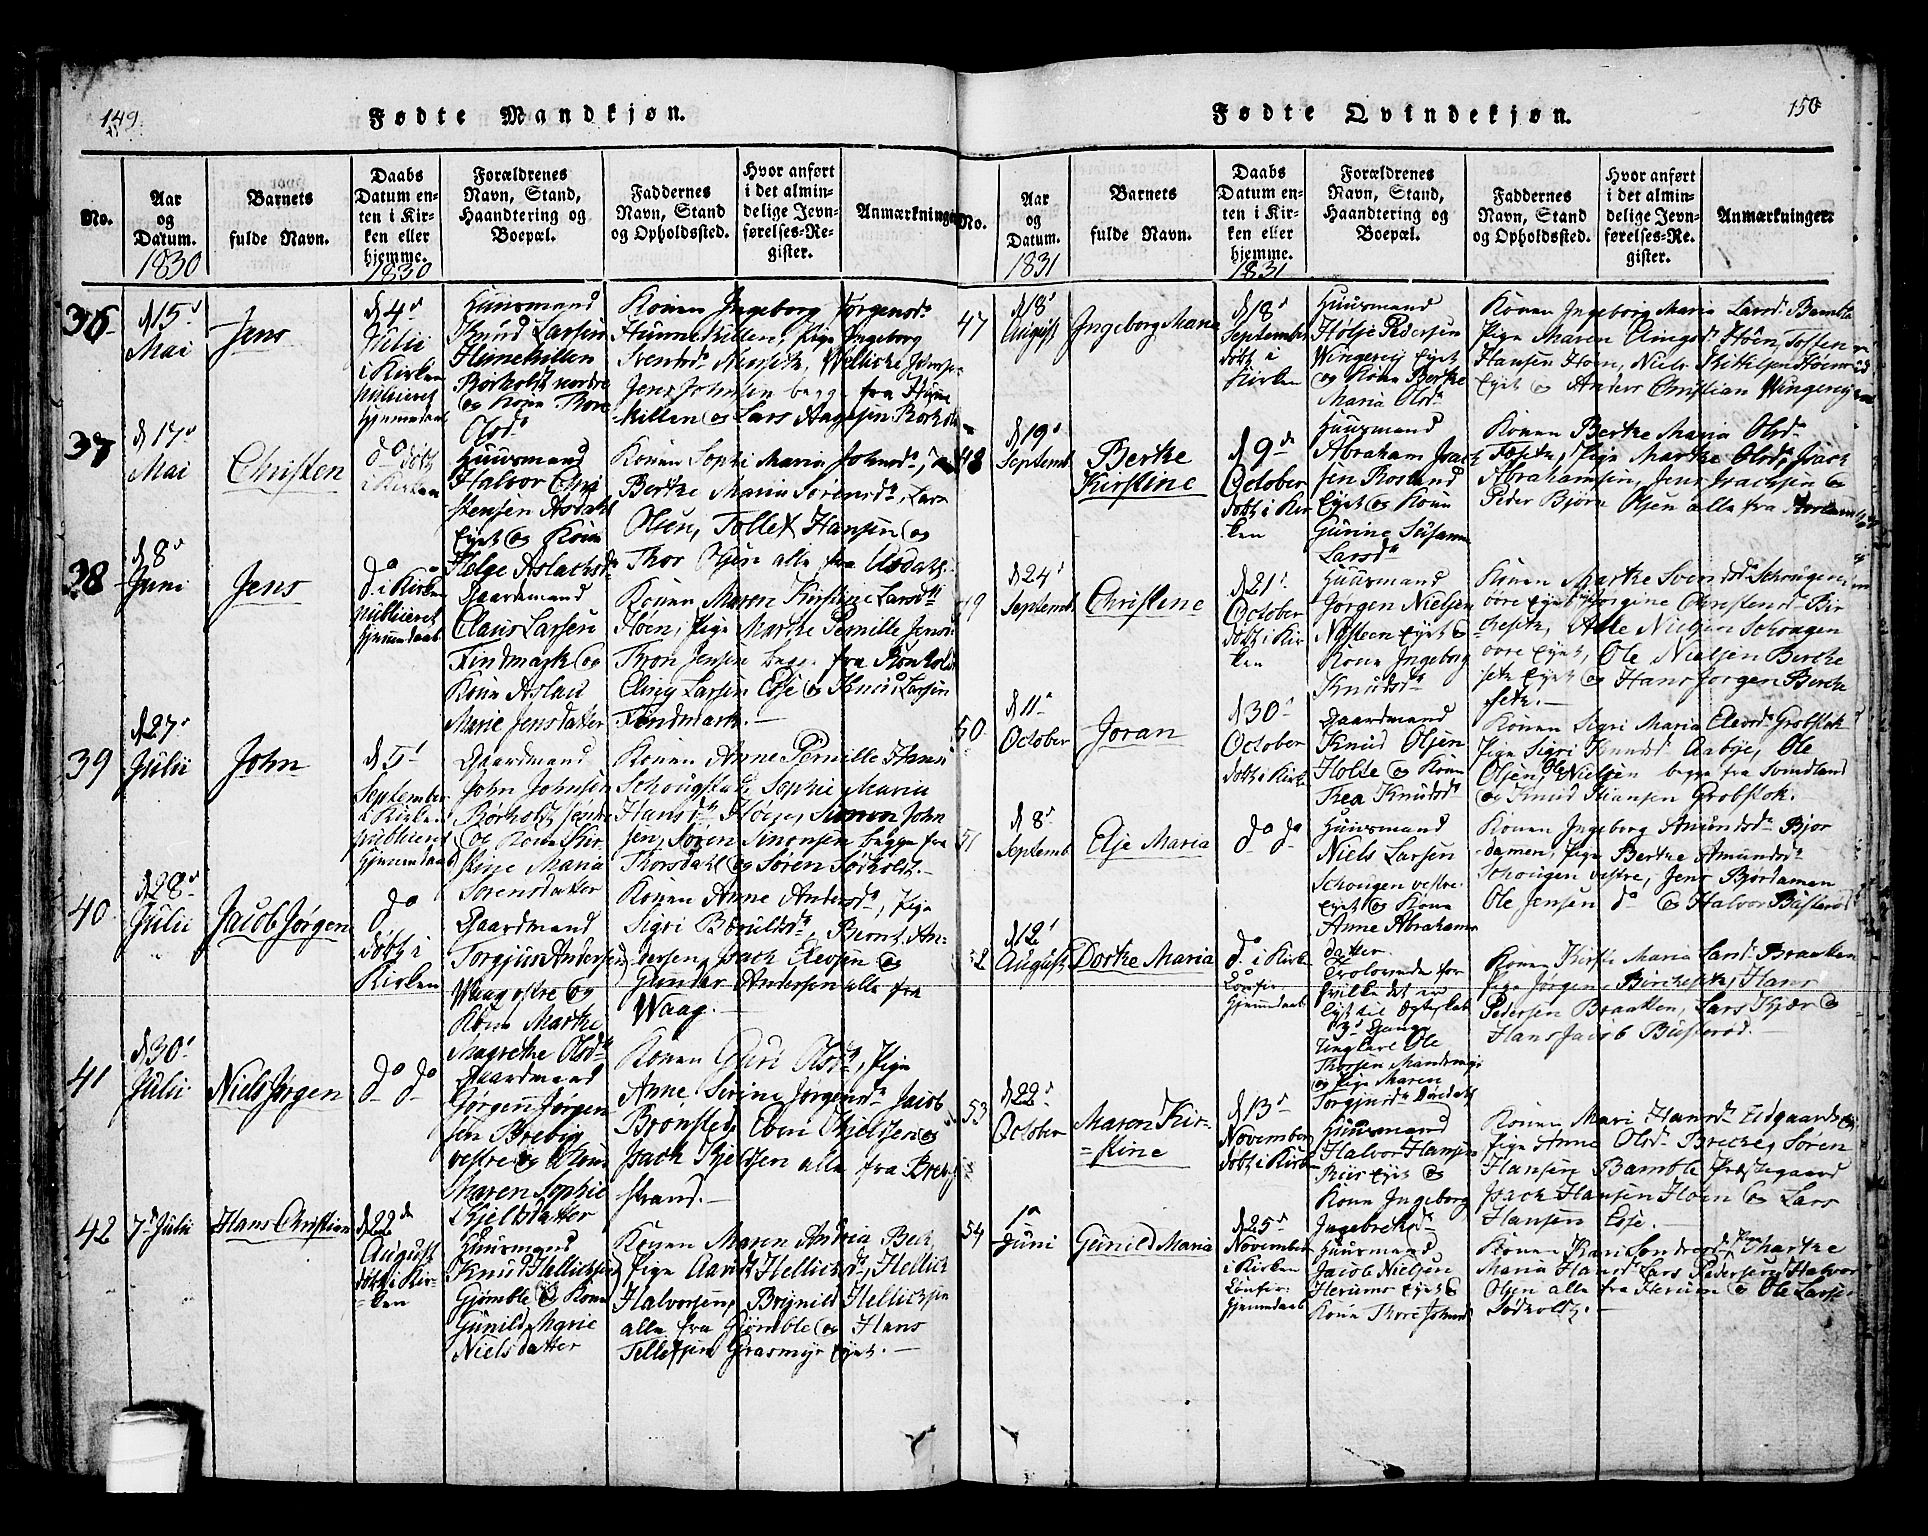 149.
Fødte Mandkjøn.
No.
Aar
og
Datum.
1830
Barnets
fulde Navn.
Daabs
Datum en-
ten i Kir-
ken eller
hjemme.
1830
Forældrenes
Navn, Stand,
Haandtering og
Boepæl.
Faddernes
Navn, Stand
og Opholdssted.
Hvor anført
i det almin-
delige Jevn-
førelses-Re-
gister.
Anmærkninger
36
d 15
Mai
Jens
d 4
Julii
i Kirken
publiceret
hjemmedaab
Huusmand
Knud Larsen
Hunekillen
Børholdt nordre
og Kone Thore
Olsd
Konen Ingeborg Jørgensd
Hunnekillen, Pige Ingeborg
Jens Johnsen begge fra Hune
killen og Lars Aagesen Borholt
37
d 17
Mai
Christen
do døbt
i Kirken
Huusmand
Halvor Chri
stensen Asdahl
Eyet og Kone
Helge Aslachsd
Konen Sophi Maria Johnsd,
Berthe Maria Sørensd, Lars
Olsen, Tollef Hansen og
Thor Olsen alle fra Asdahl.
38
d 8
Juni
Jens
do i Kirken
publiceret
hjemmedaab
Gaardmand
Claus Larsen
Findmark og
Kone Aslau
Marie Jensdatter
Konen Maren Kirstine Larsd
Hoen, Pige Marthe Pernille Jensd
Tron Jensen begge fra Ronholdt
Eling Larsen Esse og Knud Larsen
Findmark.
39
d 27
Julii
John
d 5
September
i Kirken
publiceret
hjemmedaab
Gaardmand
John Johnsen
Børholdt søndre
og Kone Kir
stine Maria
Sørensdatter
Konen Anne Pernille Hansd
Schougstad, Sophi Maria
Hansd Hoen, Simon John
sen, Søren Simonsen begge fra
Thorsdahl og Søren Sørholt.
40
d 28
Julii
Jacob Jørgen
do
døbt i
Kirken
Gaardmand
Torgjus Andersen
Waag østre og
Kone Marthe
Magrethe Olsd
Konen Anne Andersd, Pige
Sigri Børuldsd, Bernt An-
dersen, Isach Elevsen og
Gunder Andersen alle fra
Waag.
41
d 30
Julii
Niels Jørgen
do do
Gaardmand
Jørgen Jørgen
sen Brevig
vestre og Kone
Maren Sophie
Kjelsdatter
Konen Guri Olsd, Pige
Anne Serine Jørgensd, Jacob
Brønsted, Even Kjelsen og
Isach Kjelsen alle fra Brevig
strand.
42
7 Julii
Hans Christian
d 22
August
døbt i Kir-
ken
Huusmand
Knud Hellichsen
Gjømble og Kone
Gunild Marie
Nielsdatter
Konen Maren Andrea Bech
Pige Aavid Hellichsd, Hellich
Halvorsen, Brynild Hellichsen
alle fra Gjømble og Hans
Tellefsen Grasmyr Eyet.
150
Fødte Qvindekjøn.
No.
Aar
og
Datum.
1831
Barnets
fulde Navn.
Daabs
Datum en-
ten i Kir-
ken eller
hjemme.
1831
Forældrenes
Navn, Stand,
Haandtering og
Boepæl.
Faddernes
Navn, Stand
og Opholdssted.
Hvor anført
i det almin-
delige Jevn-
førelses-Re-
gister.
Anmærkninger.
47
d 18
August
Ingeborg Maria
d 18
September
døbt i
Kirken
Huusmand
Holje Pedersen
Wingereig Eyet
og Kone Berthe
Maria Olsd
Konen Ingeborg Maria Larsd Bamble
Pige Maren Elingsd Hoen, Tosten
Hansen Hoen, Niels Kittilsen Hoen
Eyet og Anders Christian Wingereig
48
d 19
Septemb
Berthe
Kirstine
d 9
October
døbt i Kir
ken
Huusmand
Abraham Isach
sen Rosland
Eyet og Kone
Gurine Susanne
Larsd
Konen Berthe Maria Olsd
Fosse, Pige Marthe Olsd, Isach
Abrahamsen, Jens Isachsen og
Peder Bjørn Olsen alle fra Rosland
49
d 24
Septemb
Christine
d 21
October
døbt i Kir
ken
Huusmand
Jørgen Nielsen
Nøsteen Eyet og
Kone Ingeborg
Knudsd
Konen Marthe Svendsd Schougen
øvre Eyet, Pige Jørgine Christensd Bir
chesete, Atle Nielsen Schougen
øvre Eyet, Ole Nielsen Berche
sete Eyet og Hans Jørgen Berche
sete.
50
d 11
October
Joran
d 30
October
døbt i Kirk
Gaardmand
Knud Olsen
Holte og Kone
Thea Knudsd
Konen Sigri Maria Elevsd Grobstok
Pige Sigri Knudsd Aabye, Ole
Olsen, Ole Nielsen begge fra Svindland
og Knud Hansen Grobstok.
51
d 8
Septemb
Else Maria
do do
Huusmand
Niels Larsen
Schougen vestre
Eyet og Kone
Anne Abrahams
datter
Konen Ingeborg Amundsd Bjor
damen, Pige Berthe Amundsd
Schougen vestre, Jens Bjordamen
Ole Jensen do og Halvor Busterød
52
d 12
August
Dorthe Maria
do i Kirken
hjemmedaab
Trolovede for
hvilke det er
Lyst til Ægteskab
Gange
Ungkarl Ole
og Pige Maren
Torgjusd
Konen Kirsti Maria Larsd Braaken
Pige Jørgine Børchesete, Hans
Pedersen Braaken, Lars Kjær og
Hans Jacob Busterød.
53
d 22
October
Maren Kir-
stine
d 13
November
døbt i Kirk
Huusmand
Halvor Hansen
Riis Eyet og
Kone Ingeborg
Ingebretsd
Konen Mari Hansd Udgaarden
Pige Anne Olsd Breche, Søren
Hansen Bamble Præstegaard
Isach Hansen Hoen og Lars
Hansen Esse.
54
1
Juni
Gunild Maria
d 25
November
i Kirken
hjemmedaab
Huusmand
Jacob Nielsen
Herum Eyet og
Kone Thore Johnsd
Konen Kari Sondresd, Pige Marthe
Maria Hansd, Lars Pedersen, Halvor
Olsen alle fra Herum og Ole Larsen
Rødholt.